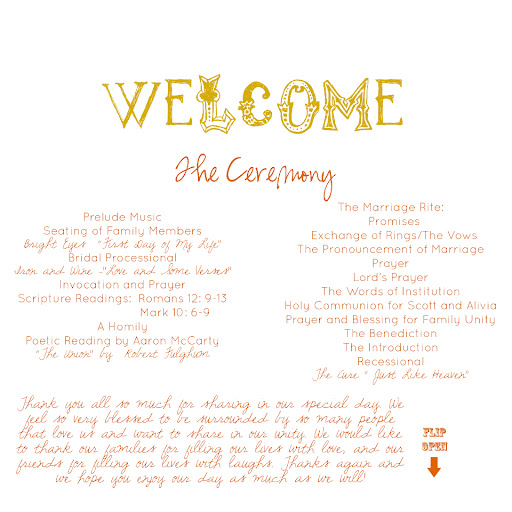 WELCOME
The Ceremony
Prelude Music
Seating of Family Members
Bright Eyes "First Day of My Life"
Bridal Processional
Iron and Wine -"Love and Some Verses"
Invocation and Prayer
Scripture Readings: Romans 12: 9-13
Mark 10: 6-9
A Homily
Poetic Reading by Aaron McCarty
"The Union" by Robert Fulghum
The Marriage Rite:
Promises
Exchange of Rings/The Vows
The Pronouncement of Marriage
Prayer
Lord's Prayer
The Words of Institution
Holy Communion for Scott and Alivia
Prayer and Blessing for Family Unity
The Benediction
The Introduction
Recessional
The Cure " Just Like Heaven"
Thank you all so much for sharing in our special day. We
feel so very blessed to be surrounded by so many people
that love us and want to share in our unity. We would like
to thank our families for filling our lives with love, and our
friends for filling our lives with laughs. Thanks again and
we hope you enjoy our day as much as we will!
FLIP
OPEN